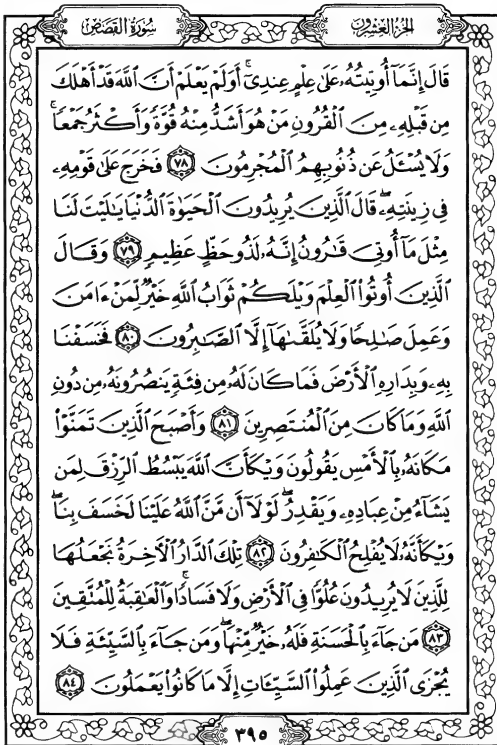 سُورَةُ القَصَصِ الجُزْءُ العِشْرُونَ
قَالَ إِنَّمَآ أُوتِيتُهُۥ عَلَىٰ عِلْمٍ عِندِىٓ ۚ أَوَلَمْ يَعْلَمْ أَنَّ ٱللَّهَ قَدْ أَهْلَكَ
مِن قَبْلِهِۦ مِنَ ٱلْقُرُونِ مَنْ هُوَ أَشَدُّ مِنْهُ قُوَّةً وَأَكْثَرُ جَمْعًا ۚ
وَلَا يُسْـَٔلُ عَن ذُنُوبِهِمُ ٱلْمُجْرِمُونَ ٧٨ فَخَرَجَ عَلَىٰ قَوْمِهِۦ
فِى زِينَتِهِۦ ۖ قَالَ ٱلَّذِينَ يُرِيدُونَ ٱلْحَيَوٰةَ ٱلدُّنْيَا يَٰلَيْتَ لَنَا
مِثْلَ مَآ أُوتِىَ قَٰرُونُ إِنَّهُۥ لَذُو حَظٍّ عَظِيمٍ ٧٩ وَقَالَ
ٱلَّذِينَ أُوتُوا۟ ٱلْعِلْمَ وَيْلَكُمْ ثَوَابُ ٱللَّهِ خَيْرٌ لِّمَنْ ءَامَنَ
وَعَمِلَ صَٰلِحًا وَلَا يُلَقَّىٰهَآ إِلَّا ٱلصَّٰبِرُونَ ٨٠ فَخَسَفْنَا
بِهِۦ وَبِدَارِهِ ٱلْأَرْضَ فَمَا كَانَ لَهُۥ مِن فِئَةٍ يَنصُرُونَهُۥ مِن دُونِ
ٱللَّهِ وَمَا كَانَ مِنَ ٱلْمُنتَصِرِينَ ٨١ وَأَصْبَحَ ٱلَّذِينَ تَمَنَّوْا۟
مَكَانَهُۥ بِٱلْأَمْسِ يَقُولُونَ وَيْكَأَنَّ ٱللَّهَ يَبْسُطُ ٱلرِّزْقَ لِمَن
يَشَآءُ مِنْ عِبَادِهِۦ وَيَقْدِرُ ۖ لَوْلَآ أَن مَّنَّ ٱللَّهُ عَلَيْنَا لَخَسَفَ بِنَا ۖ
وَيْكَأَنَّهُۥ لَا يُفْلِحُ ٱلْكَٰفِرُونَ ٨٢ تِلْكَ ٱلدَّارُ ٱلْءَاخِرَةُ نَجْعَلُهَا
لِلَّذِينَ لَا يُرِيدُونَ عُلُوًّا فِى ٱلْأَرْضِ وَلَا فَسَادًا ۚ وَٱلْعَٰقِبَةُ لِلْمُتَّقِينَ
٨٣ مَن جَآءَ بِٱلْحَسَنَةِ فَلَهُۥ خَيْرٌ مِّنْهَا ۖ وَمَن جَآءَ بِٱلسَّيِّئَةِ فَلَا
يُجْزَى ٱلَّذِينَ عَمِلُوا۟ ٱلسَّيِّـَٔاتِ إِلَّا مَا كَانُوا۟ يَعْمَلُونَ ٨٤
٣٩٥